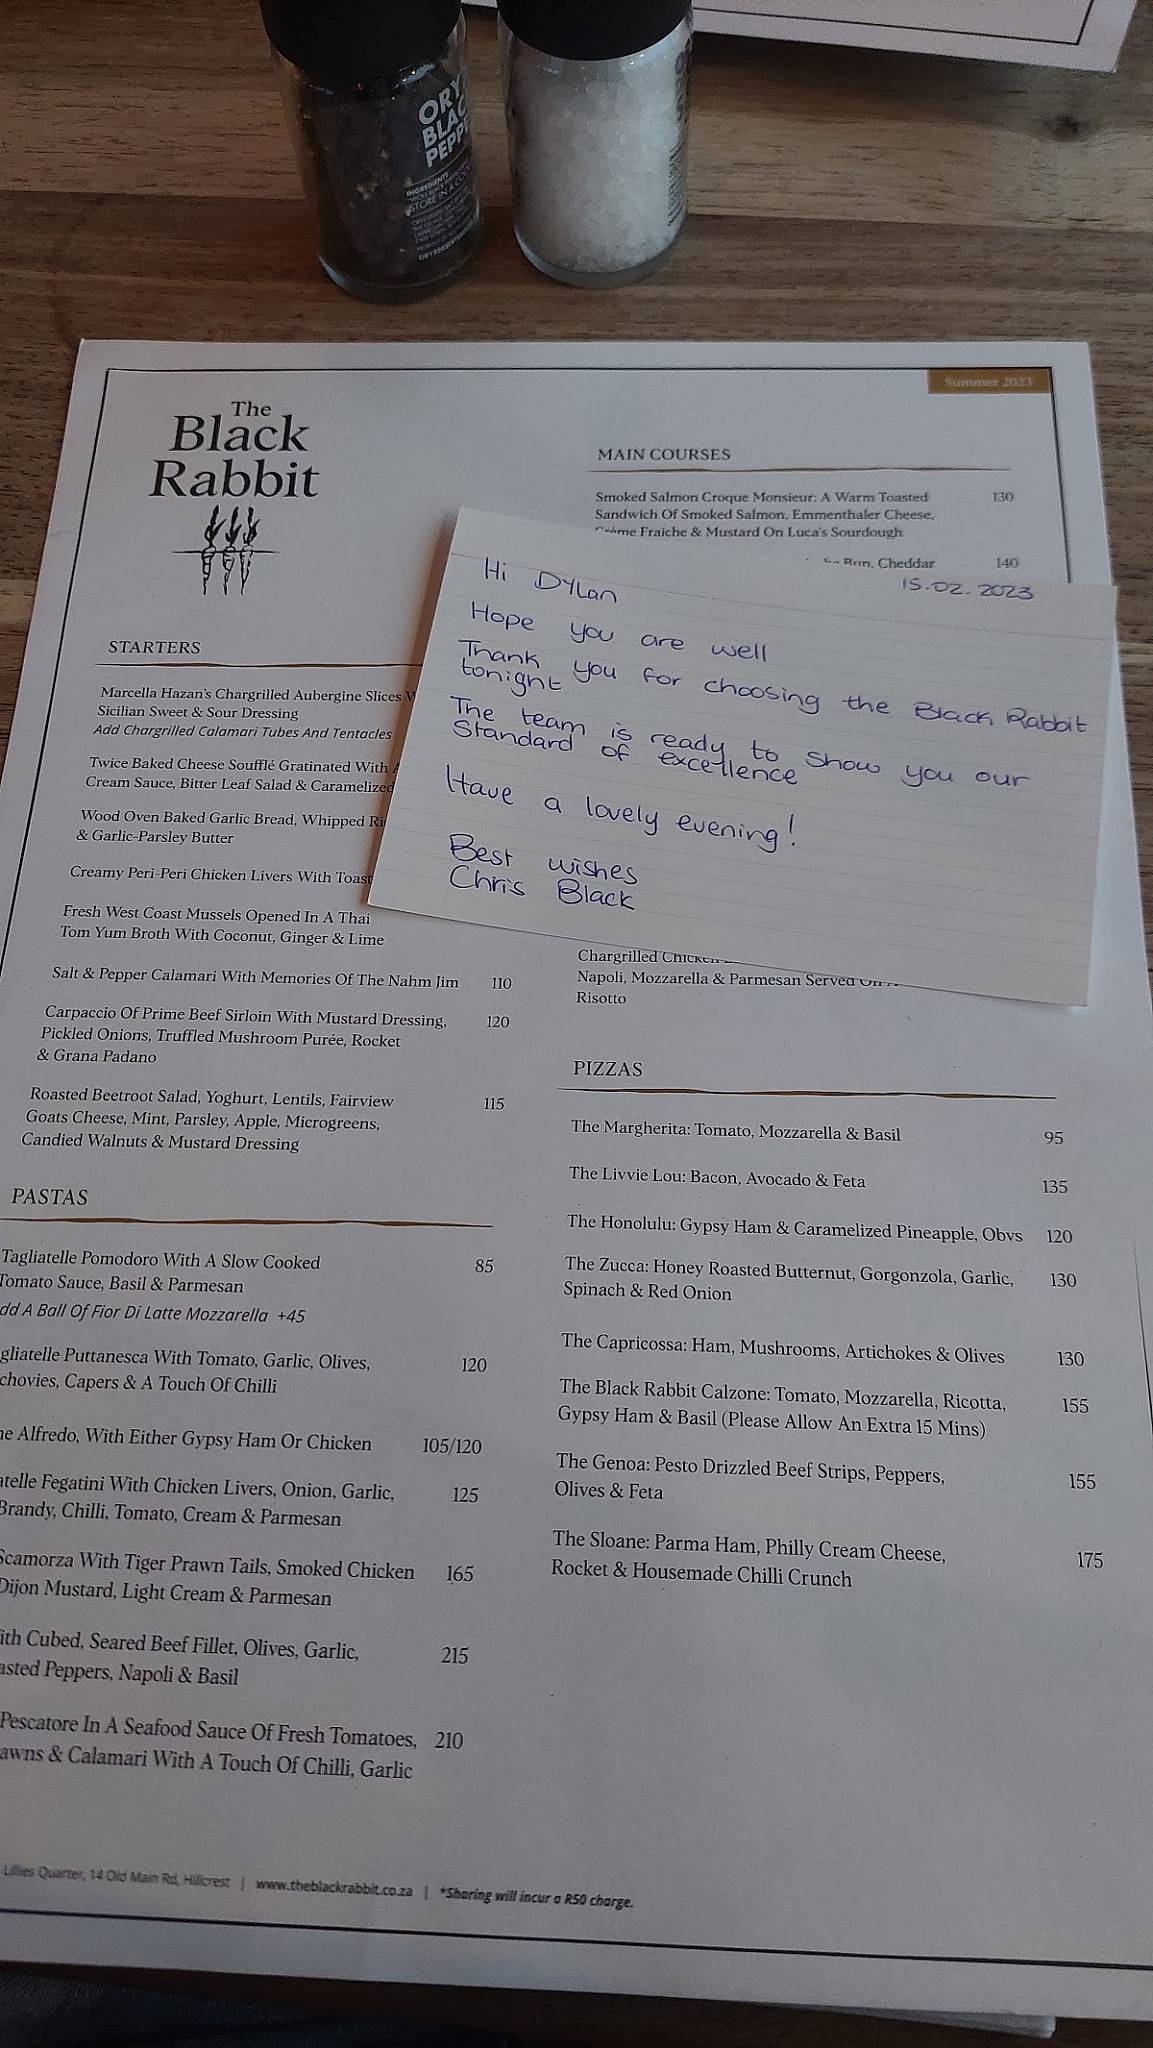 ORY
BLAC
PEPPE
INGREDIENTS
STORE IN A COO
Summer 2023
The
Black
Rabbit
STARTERS
Marcella Hazan's Chargrilled Aubergine Slices W
Sicilian Sweet & Sour Dressing
Add Chargrilled Calamari Tubes And Tentacles
Twice Baked Cheese Soufflé Gratinated With A
Cream Sauce, Bitter Leaf Salad & Caramelized
Wood Oven Baked Garlic Bread, Whipped Ri
& Garlic-Parsley Butter
Creamy Peri-Peri Chicken Livers With Toast
Fresh West Coast Mussels Opened In A Thai
Tom Yum Broth With Coconut, Ginger & Lime
Salt & Pepper Calamari With Memories Of The Nahm Jim 110
Carpaccio Of Prime Beef Sirloin With Mustard Dressing, 120
Pickled Onions, Truffled Mushroom Purée, Rocket
& Grana Padano
Roasted Beetroot Salad, Yoghurt, Lentils, Fairview 115
Goats Cheese, Mint, Parsley, Apple, Microgreens,
Candied Walnuts & Mustard Dressing
PASTAS
Tagliatelle Pomodoro With A Slow Cooked 85
Tomato Sauce, Basil & Parmesan
dd A Ball Of Fior Di Latte Mozzarella +45
gliatelle Puttanesca With Tomato, Garlic, Olives, 120
chovies, Capers & A Touch Of Chilli
ne Alfredo, With Either Gypsy Ham Or Chicken 105/120
atelle Fegatini With Chicken Livers, Onion, Garlic, 125
Brandy, Chilli, Tomato, Cream & Parmesan
Scamorza With Tiger Prawn Tails, Smoked Chicken 165
Dijon Mustard, Light Cream & Parmesan
ith Cubed, Seared Beef Fillet, Olives, Garlic, 215
asted Peppers, Napoli & Basil
Pescatore In A Seafood Sauce Of Fresh Tomatoes, 210
awns & Calamari With A Touch Of Chilli, Garlic
MAIN COURSES
Smoked Salmon Croque Monsieur: A Warm Toasted 130
Sandwich Of Smoked Salmon, Emmenthaler Cheese,
Crème Fraiche & Mustard On Luca's Sourdough
Bun, Cheddar 140
Hi Dylan 15.02.2023
Hope you are well
Thank you for choosing the Black Rabbit
tonight
The team is ready to show you our
Standard of excellence
Have a lovely evening!
Best wishes
Chris Black
Chargrilled Chicken
Napoli, Mozzarella & Parmesan Served On A
Risotto
PIZZAS
The Margherita: Tomato, Mozzarella & Basil 95
The Livvie Lou: Bacon, Avocado & Feta 135
The Honolulu: Gypsy Ham & Caramelized Pineapple, Obvs 120
The Zucca: Honey Roasted Butternut, Gorgonzola, Garlic, 130
Spinach & Red Onion
The Capricossa: Ham, Mushrooms, Artichokes & Olives 130
The Black Rabbit Calzone: Tomato, Mozzarella, Ricotta, 155
Gypsy Ham & Basil (Please Allow An Extra 15 Mins)
The Genoa: Pesto Drizzled Beef Strips, Peppers, 155
Olives & Feta
The Sloane: Parma Ham, Philly Cream Cheese, 175
Rocket & Housemade Chilli Crunch
Lillies Quarter, 14 Old Main Rd, Hillcrest | www.theblackrabbit.co.za | *Sharing will incur a R50 charge.